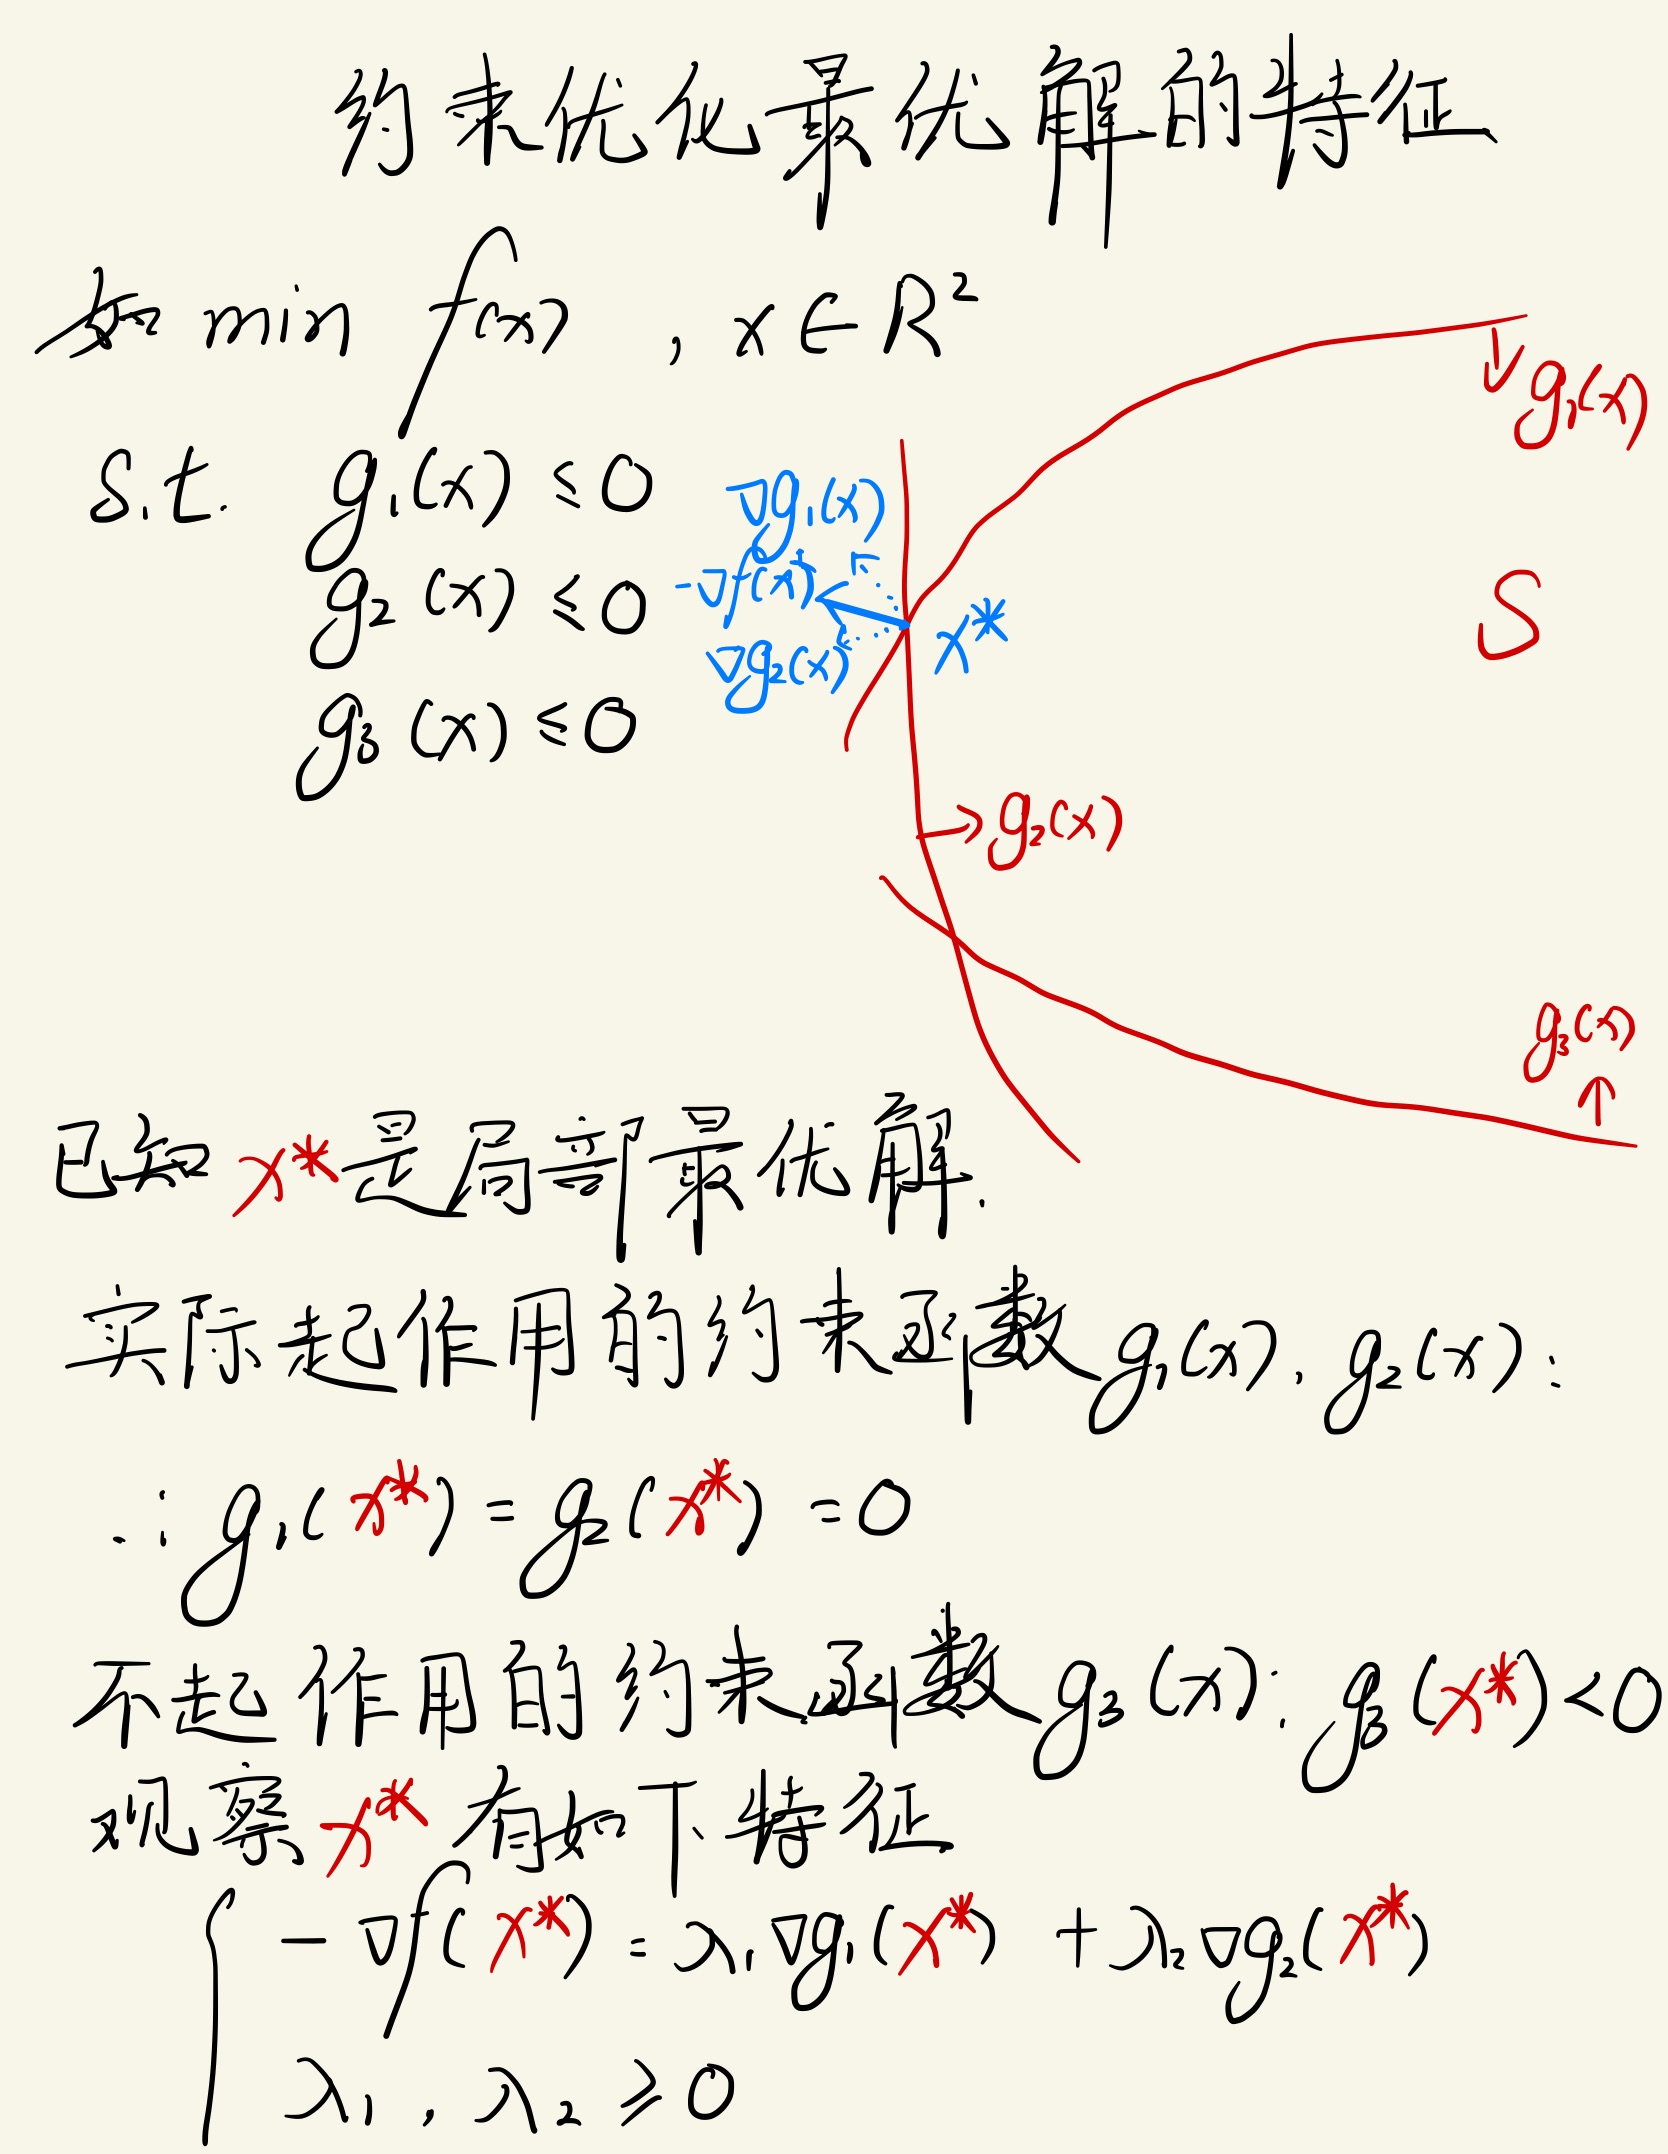 约束优化最优解的特征
如 min f(x) , x∈R²
↓g₁(x)
s.t. g₁(x) ≤0
∇g₁(x)
g₂(x) ≤0
-∇f(x)
x*
S
∇g₂(x)
g₃(x) ≤0
→g₂(x)
g₃(x)
↑
已知x*是局部最优解.
实际起作用的约束函数g₁(x),g₂(x):
∴ g₁(x*)=g₂(x*)=0
不起作用的约束函数g₃(x):g₃(x*)<0
观察x*有如下特征
{ -∇f(x*)=λ₁∇g₁(x*)+λ₂∇g₂(x*)
λ₁,λ₂≥0